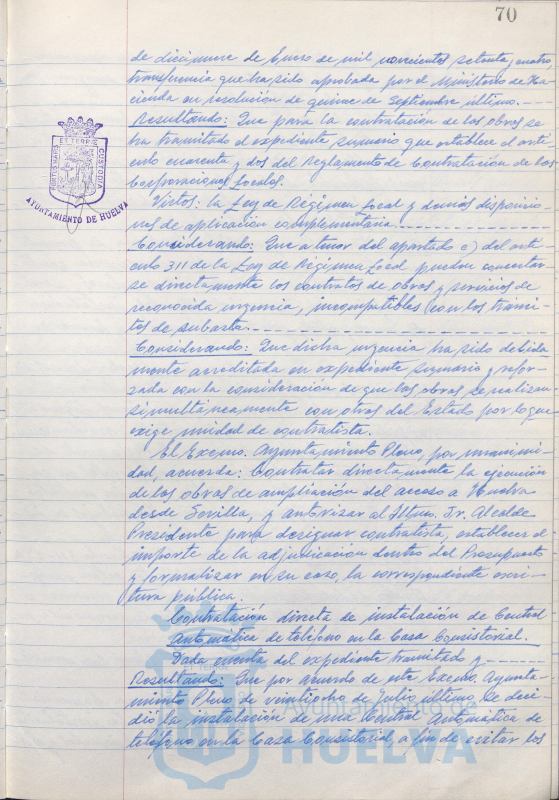 70
de diecinueve de Enero de mil novecientos setenta y cuatro,
transferencia que ha sido aprobada por el Ministerio de Ha-
cienda en resolución de quince de Septiembre último.
Resultando: Que para la contratación de las obras se
ha tramitado el expediente sumario que establece el artí-
culo cuarenta y dos del Reglamento de Contratación de las
Corporaciones Locales.
Vistos: la Ley de Régimen Local y demás disposicio-
nes de aplicación complementaria.
Considerando: Que a tenor del apartado c) del artí-
culo 311 de la Ley de Régimen Local pueden concertar-
se directamente los contratos de obras y servicios de
reconocida urgencia, incompatibles con los trámi-
tes de subasta.
Considerando: Que dicha urgencia ha sido debida-
mente acreditada en expediente sumario y refor-
zada con la consideración de que las obras se realizan
simultáneamente con otras del Estado por lo que
exige unidad de contratista.
El Excmo. Ayuntamiento Pleno, por unanimi-
dad, acuerda: Contratar directamente la ejecución
de las obras de ampliación del acceso a Huelva
desde Sevilla, y autorizar al Iltmo. Sr. Alcalde
Presidente para designar contratista, establecer el
importe de la adjudicación dentro del Presupuesto
y formalizar en su caso, la correspondiente escri-
tura pública.
Contratación directa de instalación de Central
Automática de teléfono en la Casa Consistorial.
Dada cuenta del expediente tramitado y
Resultando: Que por acuerdo de este Excmo. Ayunta-
miento Pleno de veintiocho de Julio último, se deci-
dió la instalación de una Central Automática de
teléfono en la Casa Consistorial, a fin de evitar los
PORTUS MARIS ET TERRE CUSTODIA
AYUNTAMIENTO DE HUELVA
Ayuntamiento de
HUELVA